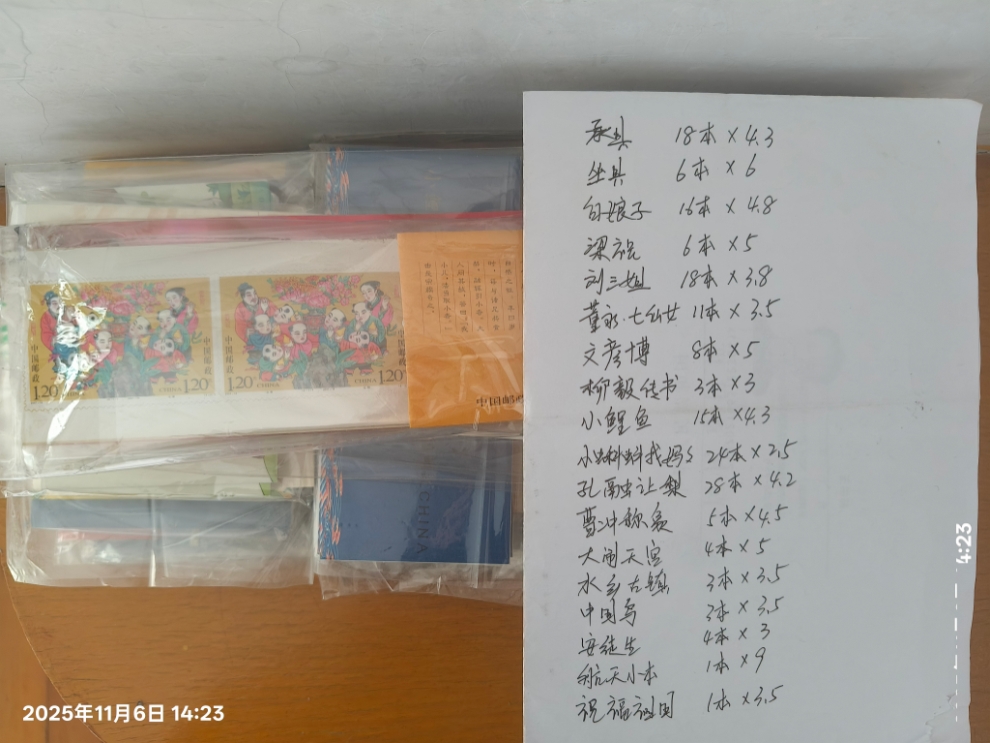 承具 18本×4.3
坐具 6本×6
白娘子 16本×4.8
梁祝 6本×5
刘三姐 18本×3.8
董永·七仙女 11本×3.5
文彦博 8本×5
柳毅传书 3本×3
小鲤鱼 15本×4.3
小蝌蚪找妈妈 24本×2.5
孔融让梨 28本×4.2
曹冲称象 5本×4.5
大闹天宫 4本×5
水乡古镇 3本×3.5
中国鸟 3本×3.5
安徒生 4本×3
航天小本 1本×9
祝福祖国 1本×3.5
中国邮政
1.20
CHINA
中国邮政
1.20
CHINA
中国邮政
CHINA
4:23
2025年11月6日 14:23